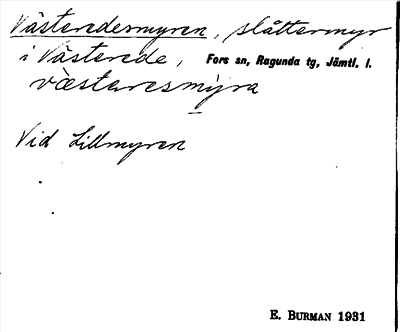 Västeredesmyren, slåttermyr
i Västerede, Fors sn, Ragunda tg, Jämtl. l.
væstaresmyra
Vid Lillmyren
E. BURMAN 1931